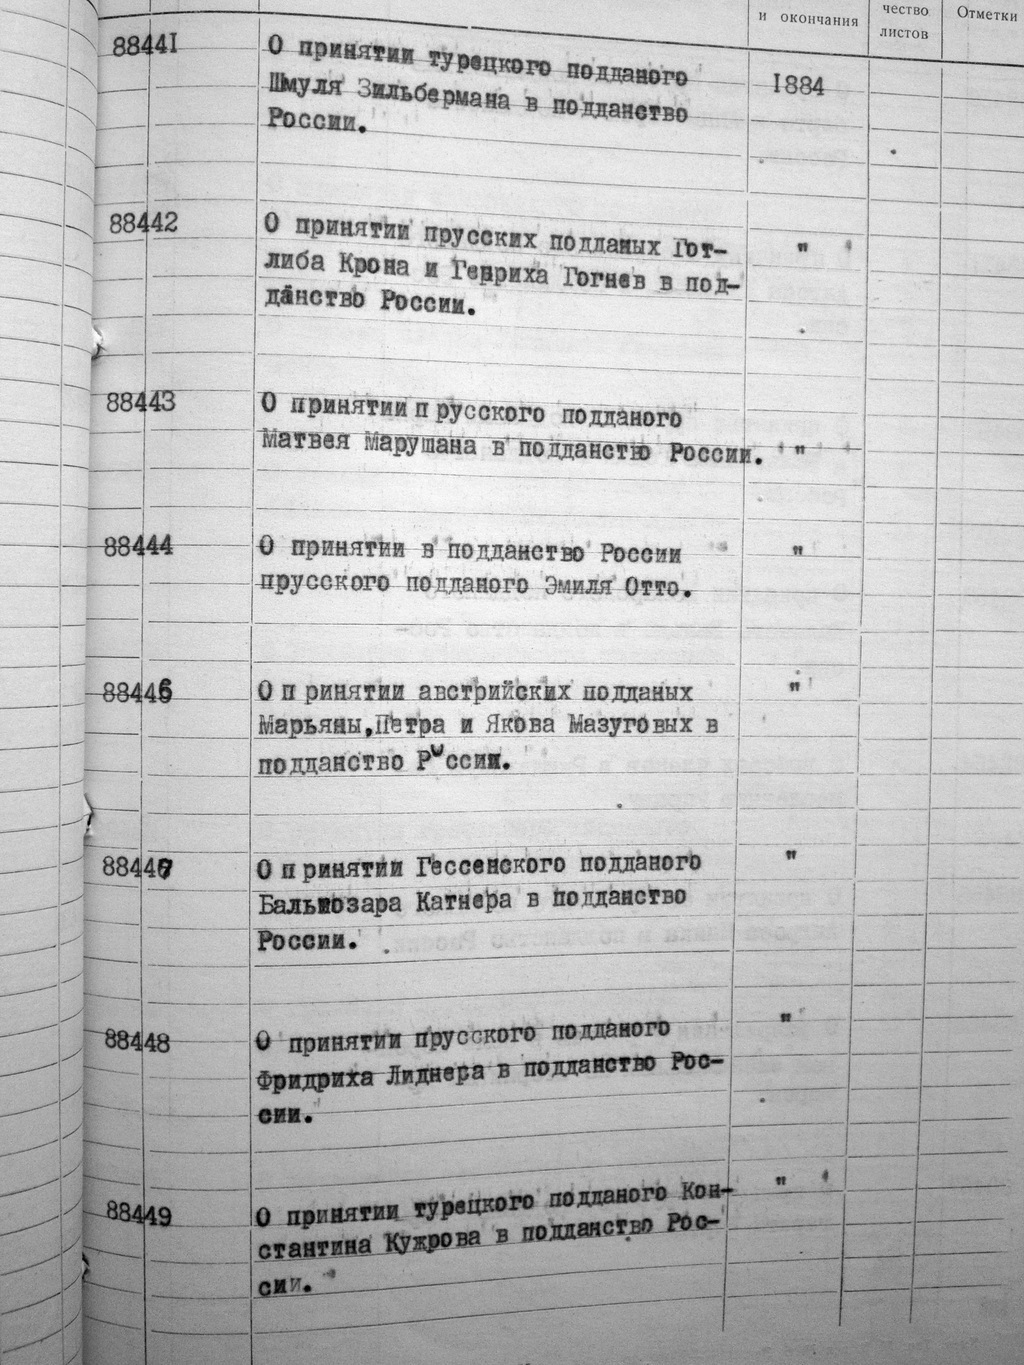 и окончания
чество
листов
Отметки
88441
О принятии турецкого подданого
Шмуля Зильбермана в подданство
России.
1884
88442
О принятии прусских подданых Гот-
либа Крона и Генриха Гогнев в под-
данство России.
"
88443
О принятии п русского подданого
Матвея Марушана в подданство России.
"
88444
О принятии в подданство России
прусского подданого Эмиля Отто.
"
88446
О п ринятии австрийских подданых
Марьяны,Петра и Якова Мазуговых в
подданство России.
"
88447
О п ринятии Гессенского подданого
Бальмозара Катнера в подданство
России.
"
88448
О принятии прусского подданого
Фридриха Лиднера в подданство Рос-
сии.
"
88449
О принятии турецкого подданого Кон-
стантина Кужрова в подданство Рос-
сии.
"